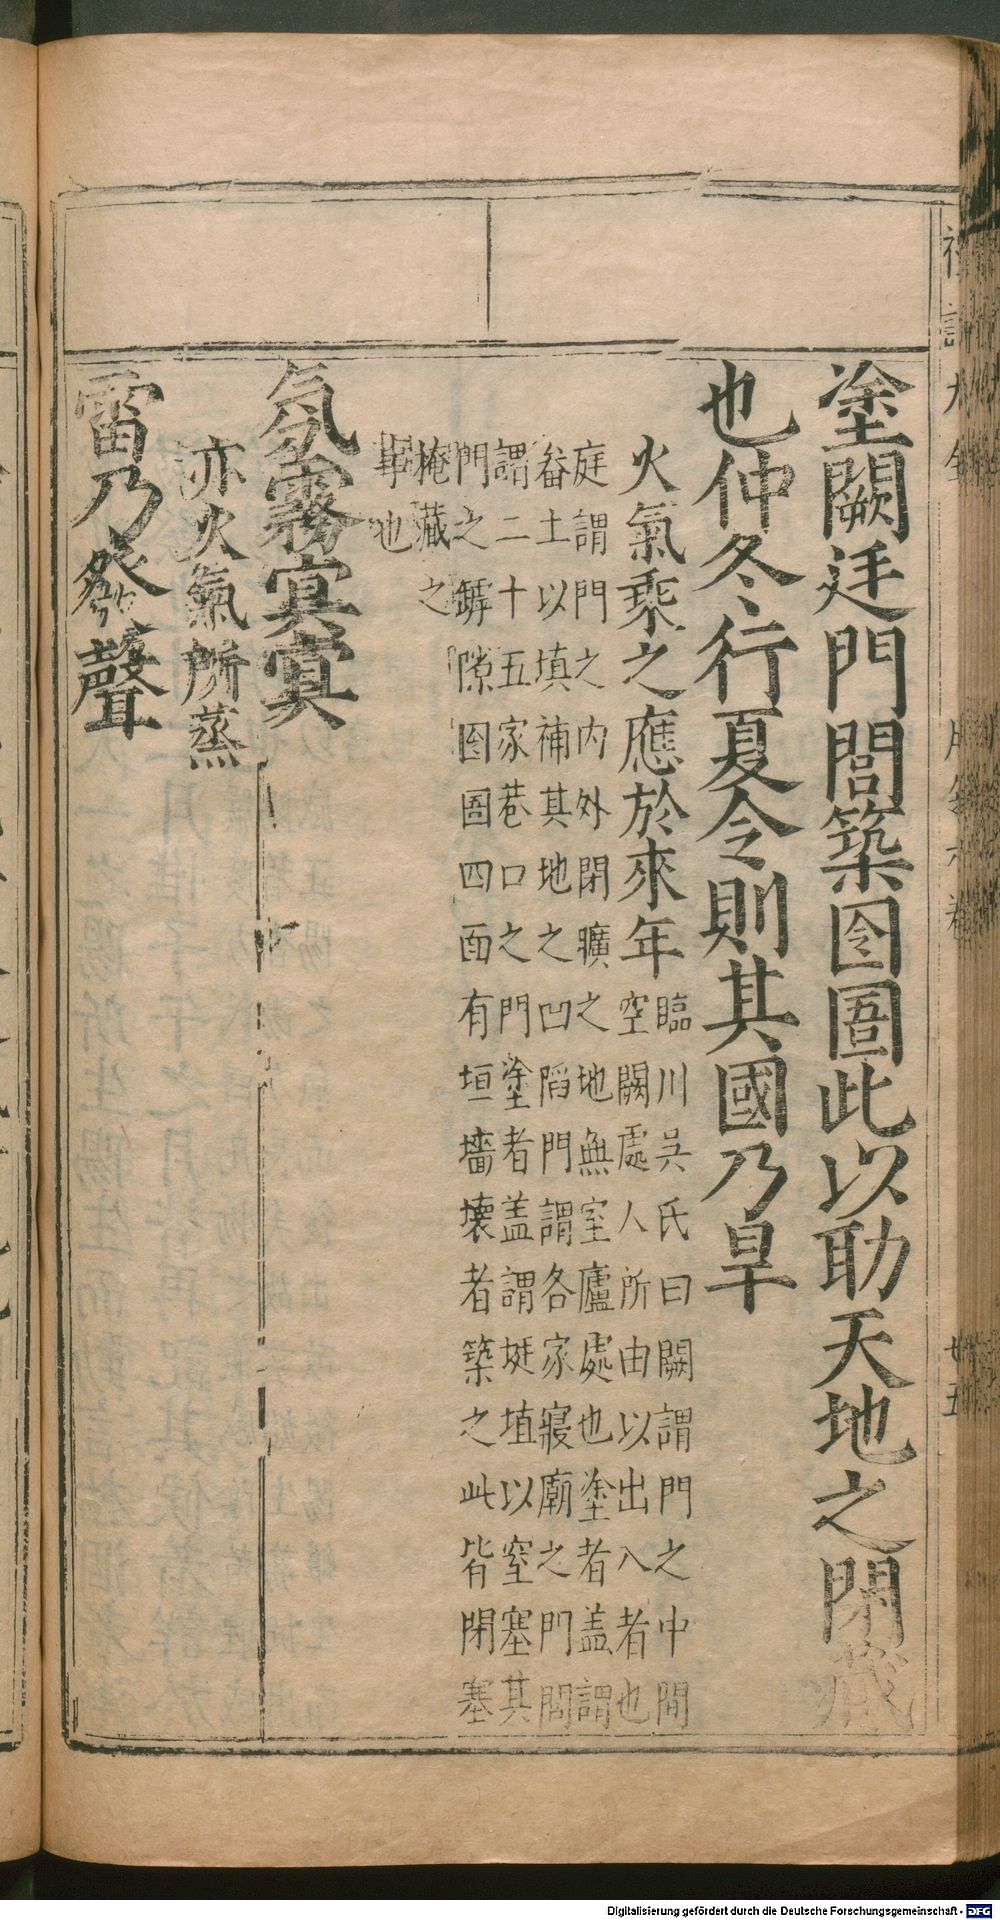 塗闕廷門閭築囹圄此以助天地之閉藏
也仲冬行夏令則其國乃旱
火氣乘之應於來年
臨川吳氏曰闕謂門之中間
空闕處人所由以出入者也
庭謂門之内外閉曠之地無室廬處也塗者盖謂
畚土以填補其地之凹陷門謂各家寢廟之門閭
謂二十五家巷口之門塗者盖謂埏埴以窒塞其
門之罅隙囹圄四面有垣墻壊者築之此皆閉塞
掩藏之
事也
氛霧㝠㝠
亦火氣所蒸
雷乃發聲
禮記大全
月令六卷
廿五
Digitalisierung gefördert durch die Deutsche Forschungsgemeinschaft - DFG